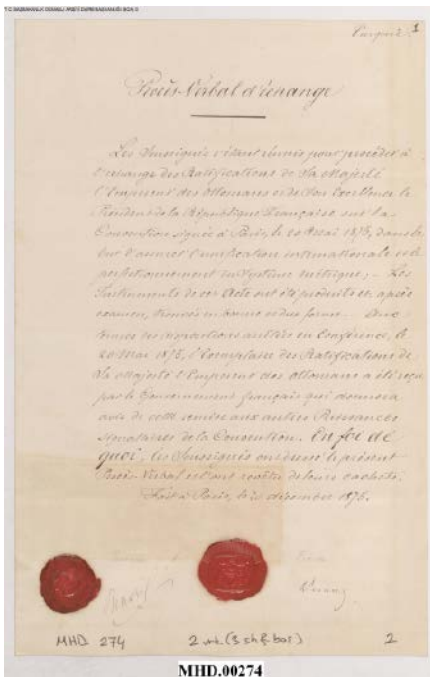 1
Procès-Verbal d'échange
Les Soussignés s'étant réunis pour procéder à
l'échange des Ratifications de Sa Majesté
l'Empereur des Ottomans et de Son Excellence le
Président de la République Française sur la
Convention signée à Paris, le 20 Mai 1875, dans le
but d'assurer l'unification internationale et le
perfectionnement du Système métrique; - Les
Instruments de ces Actes ont été produits et, après
examen, trouvés en bonne et due forme.
arrêtées en Conférence, le
20 Mai 1875, l'Exemplaire des Ratifications de
Sa Majesté l'Empereur des Ottomans a été reçu
par le Gouvernement français qui donnera
avis de cette remise aux autres Puissances
signataires de la Convention. En foi de
quoi, les Soussignés ont dressé le présent
Procès-Verbal et l'ont revêtu de leurs cachets.
Fait à Paris, le décembre 1875.
MHD 274
2
MHD.00274